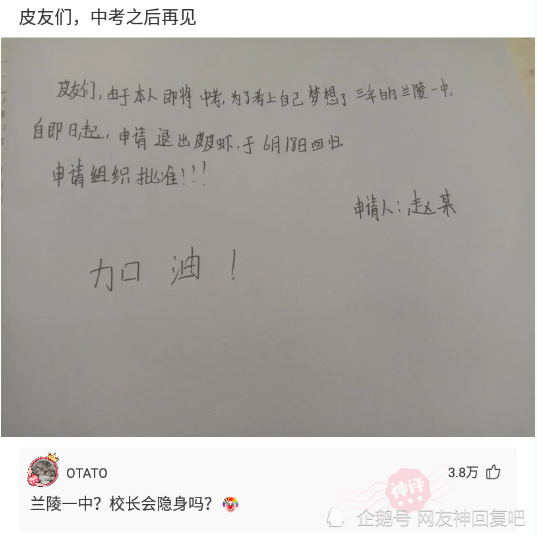 皮友们，中考之后再见
皮友们,由于本人即将中考,为了考上自己梦想了三年的兰陵一中,
自即日起,申请退出皮皮虾,于6月18日回归.
申请组织批准!!!
申请人:赵某
加油!
OTATO
3.8万
神评
兰陵一中？校长会隐身吗？
企鹅号 网友神回复吧